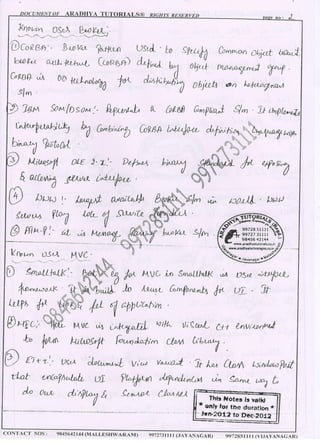 DOCUMENT OF ARADHYA TUTORIALS® RIGHTS RESERVED page no: 2
Known Uses Broker:
① CORBA:- Broker Pattern Used to Specify Common Object Request
broker architecture (CORBA) defined by object management group.
CORBA is OO technology for distributing objects on heterogenous
S/m
② IBM SOM/DSOM:- Represents a CORBA Compliant S/m. It implements
interoperability by Combining CORBA interface definition language with
binary Protocol.
③ Microsoft OLE 2.x:- Defines binary Standard for exposing
& accessing server interface.
④ WWW:- largest available Broker S/m in world. WWW
Servers Play role of Service Providers.
⑤ ATM-P:-
ARADHYA TUTORIALS
99728 51111
99727 31111
98456 42144
Known uses MVC:
① Smalltalk:- eg for MVC in Smalltalk is user interface
framework. It is build to reuse Components for UI. It
helps for feel of application.
② MFC:- MVC is integrated with Visual C++ environment
to form Microsoft Foundation Class library.
③ ET++:- Uses document View variant. It has Class WindowPort
that encapsulate UI Platform dependencies in Same way
do our display & Classes
This Notes is valid
* only for the duration *
Jan-2012 to Dec-2012
9845642144 9972851111 9972731111
CONTACT NOS: 9845642144 (MALLESHWARAM) 9972731111 (JAYANAGAR) 9972851111 (VIJAYANAGAR)